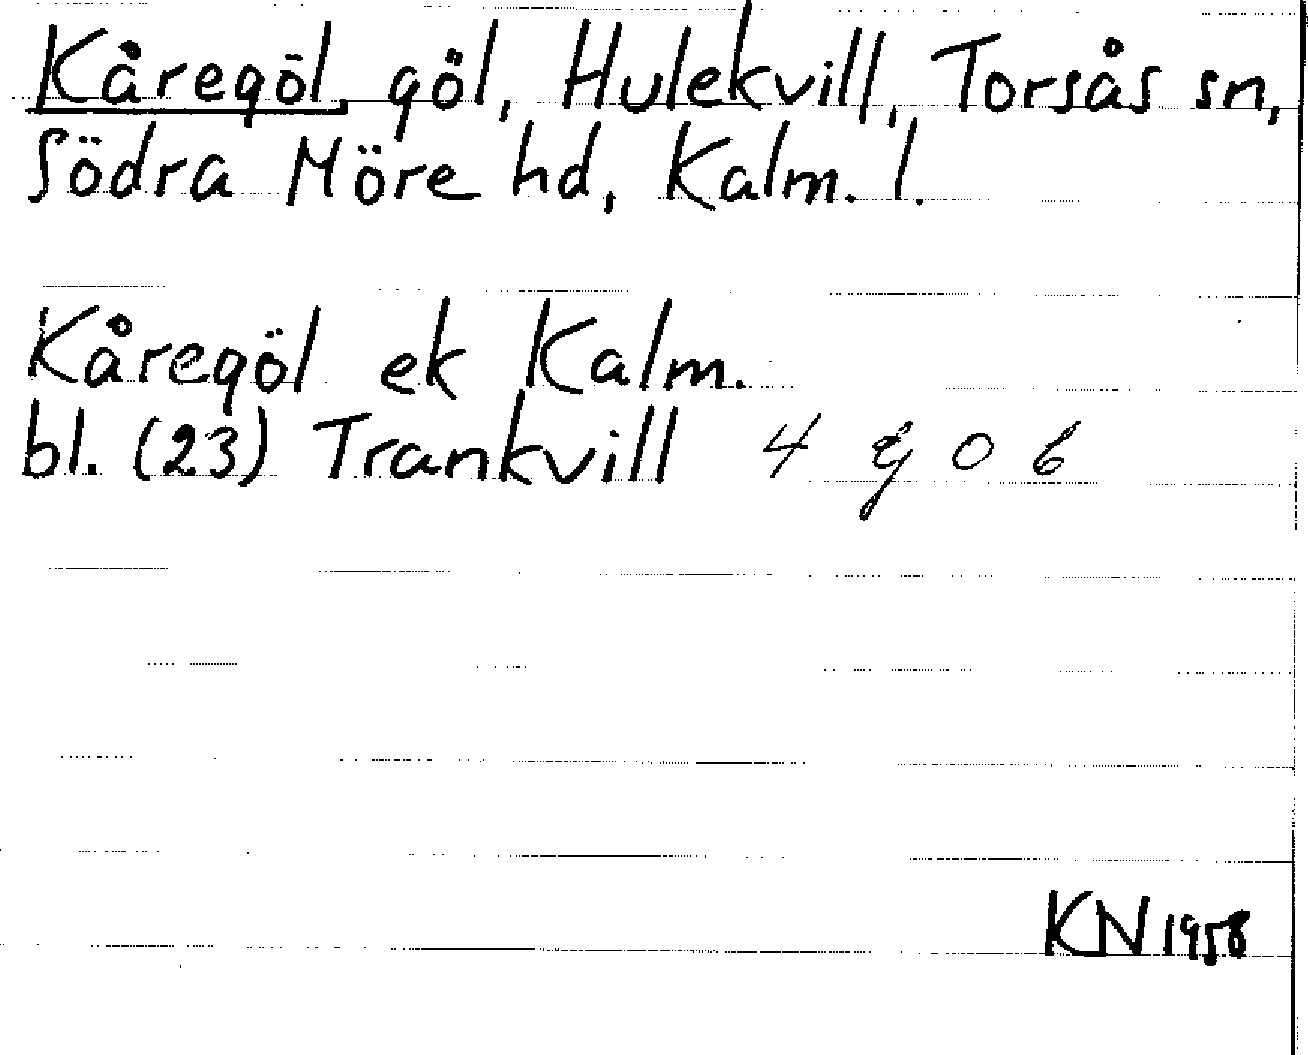 Kåregöl, göl, Hulekvill, Torsås sn,
Södra Möre hd, Kalm. l.
Kåregöl ek Kalm.
bl. (23) Trankvill 4 g 0 6
KN 1958